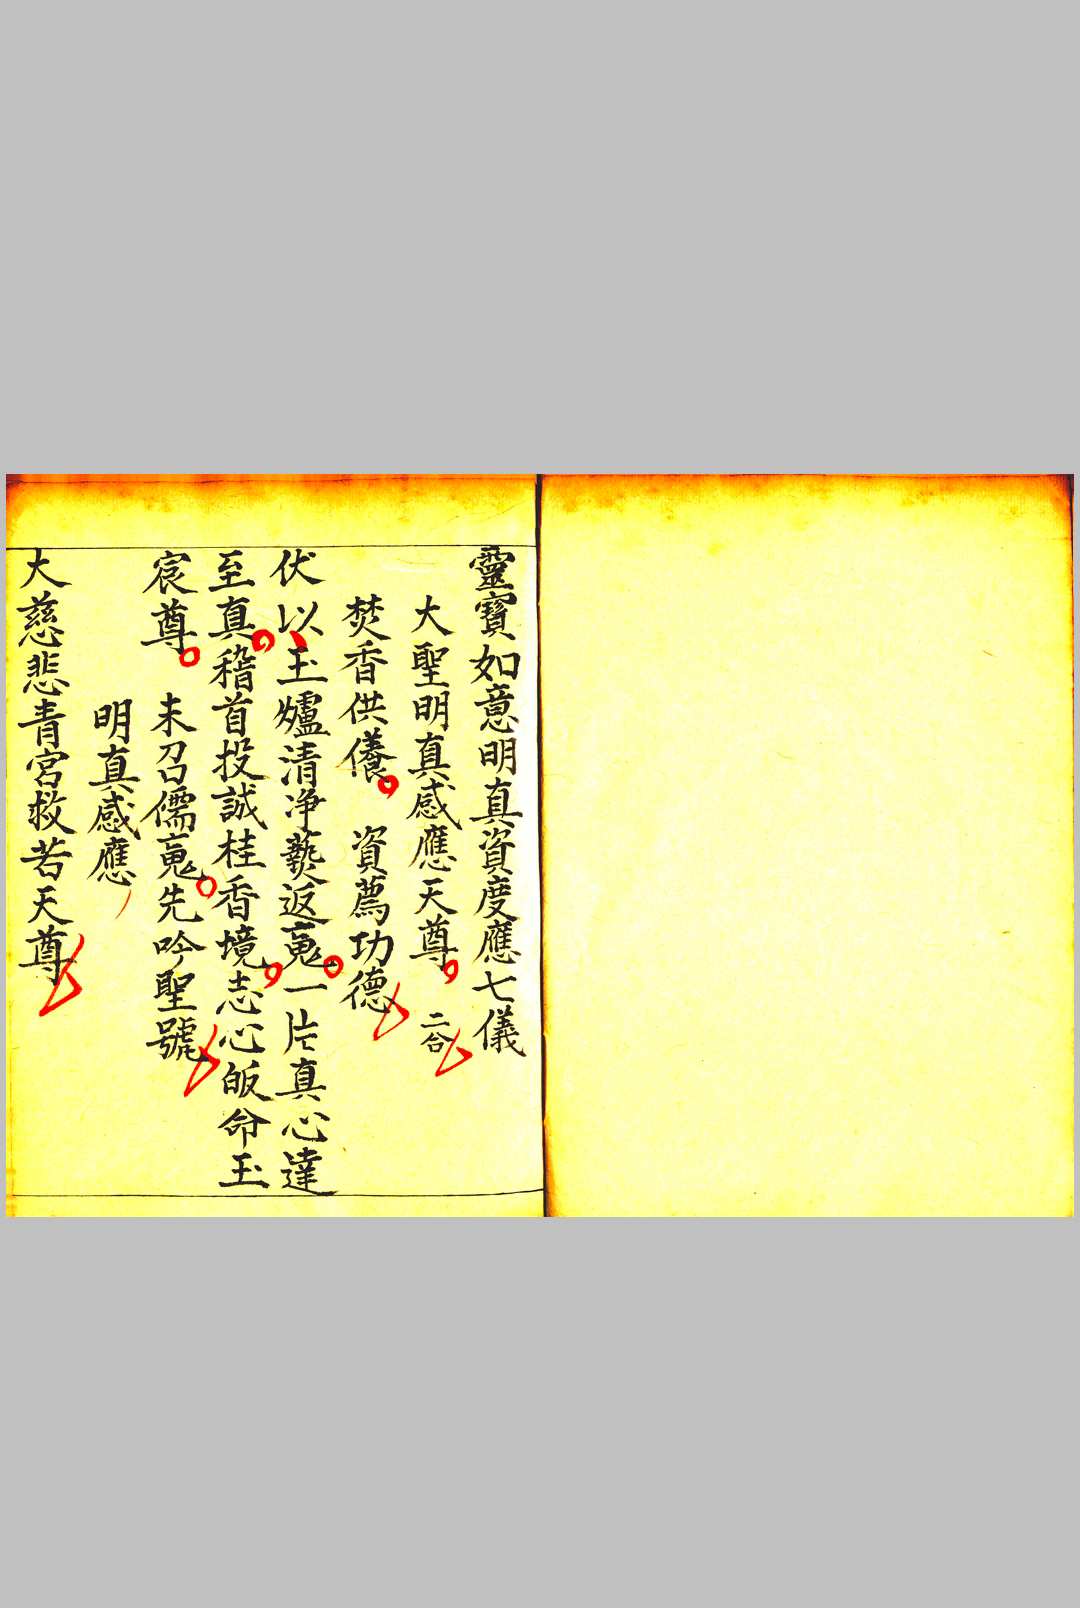 靈寶如意明真資度應七儀
大聖明真感應天尊。二合
焚香供養。資薦功德
伏以、玉爐清净爇返䰟。一片真心達
至真。稽首投誠桂香境。志心皈命玉
宸尊。未召儒䰟。先吟聖號
明真感應
大慈悲青宮救若天尊